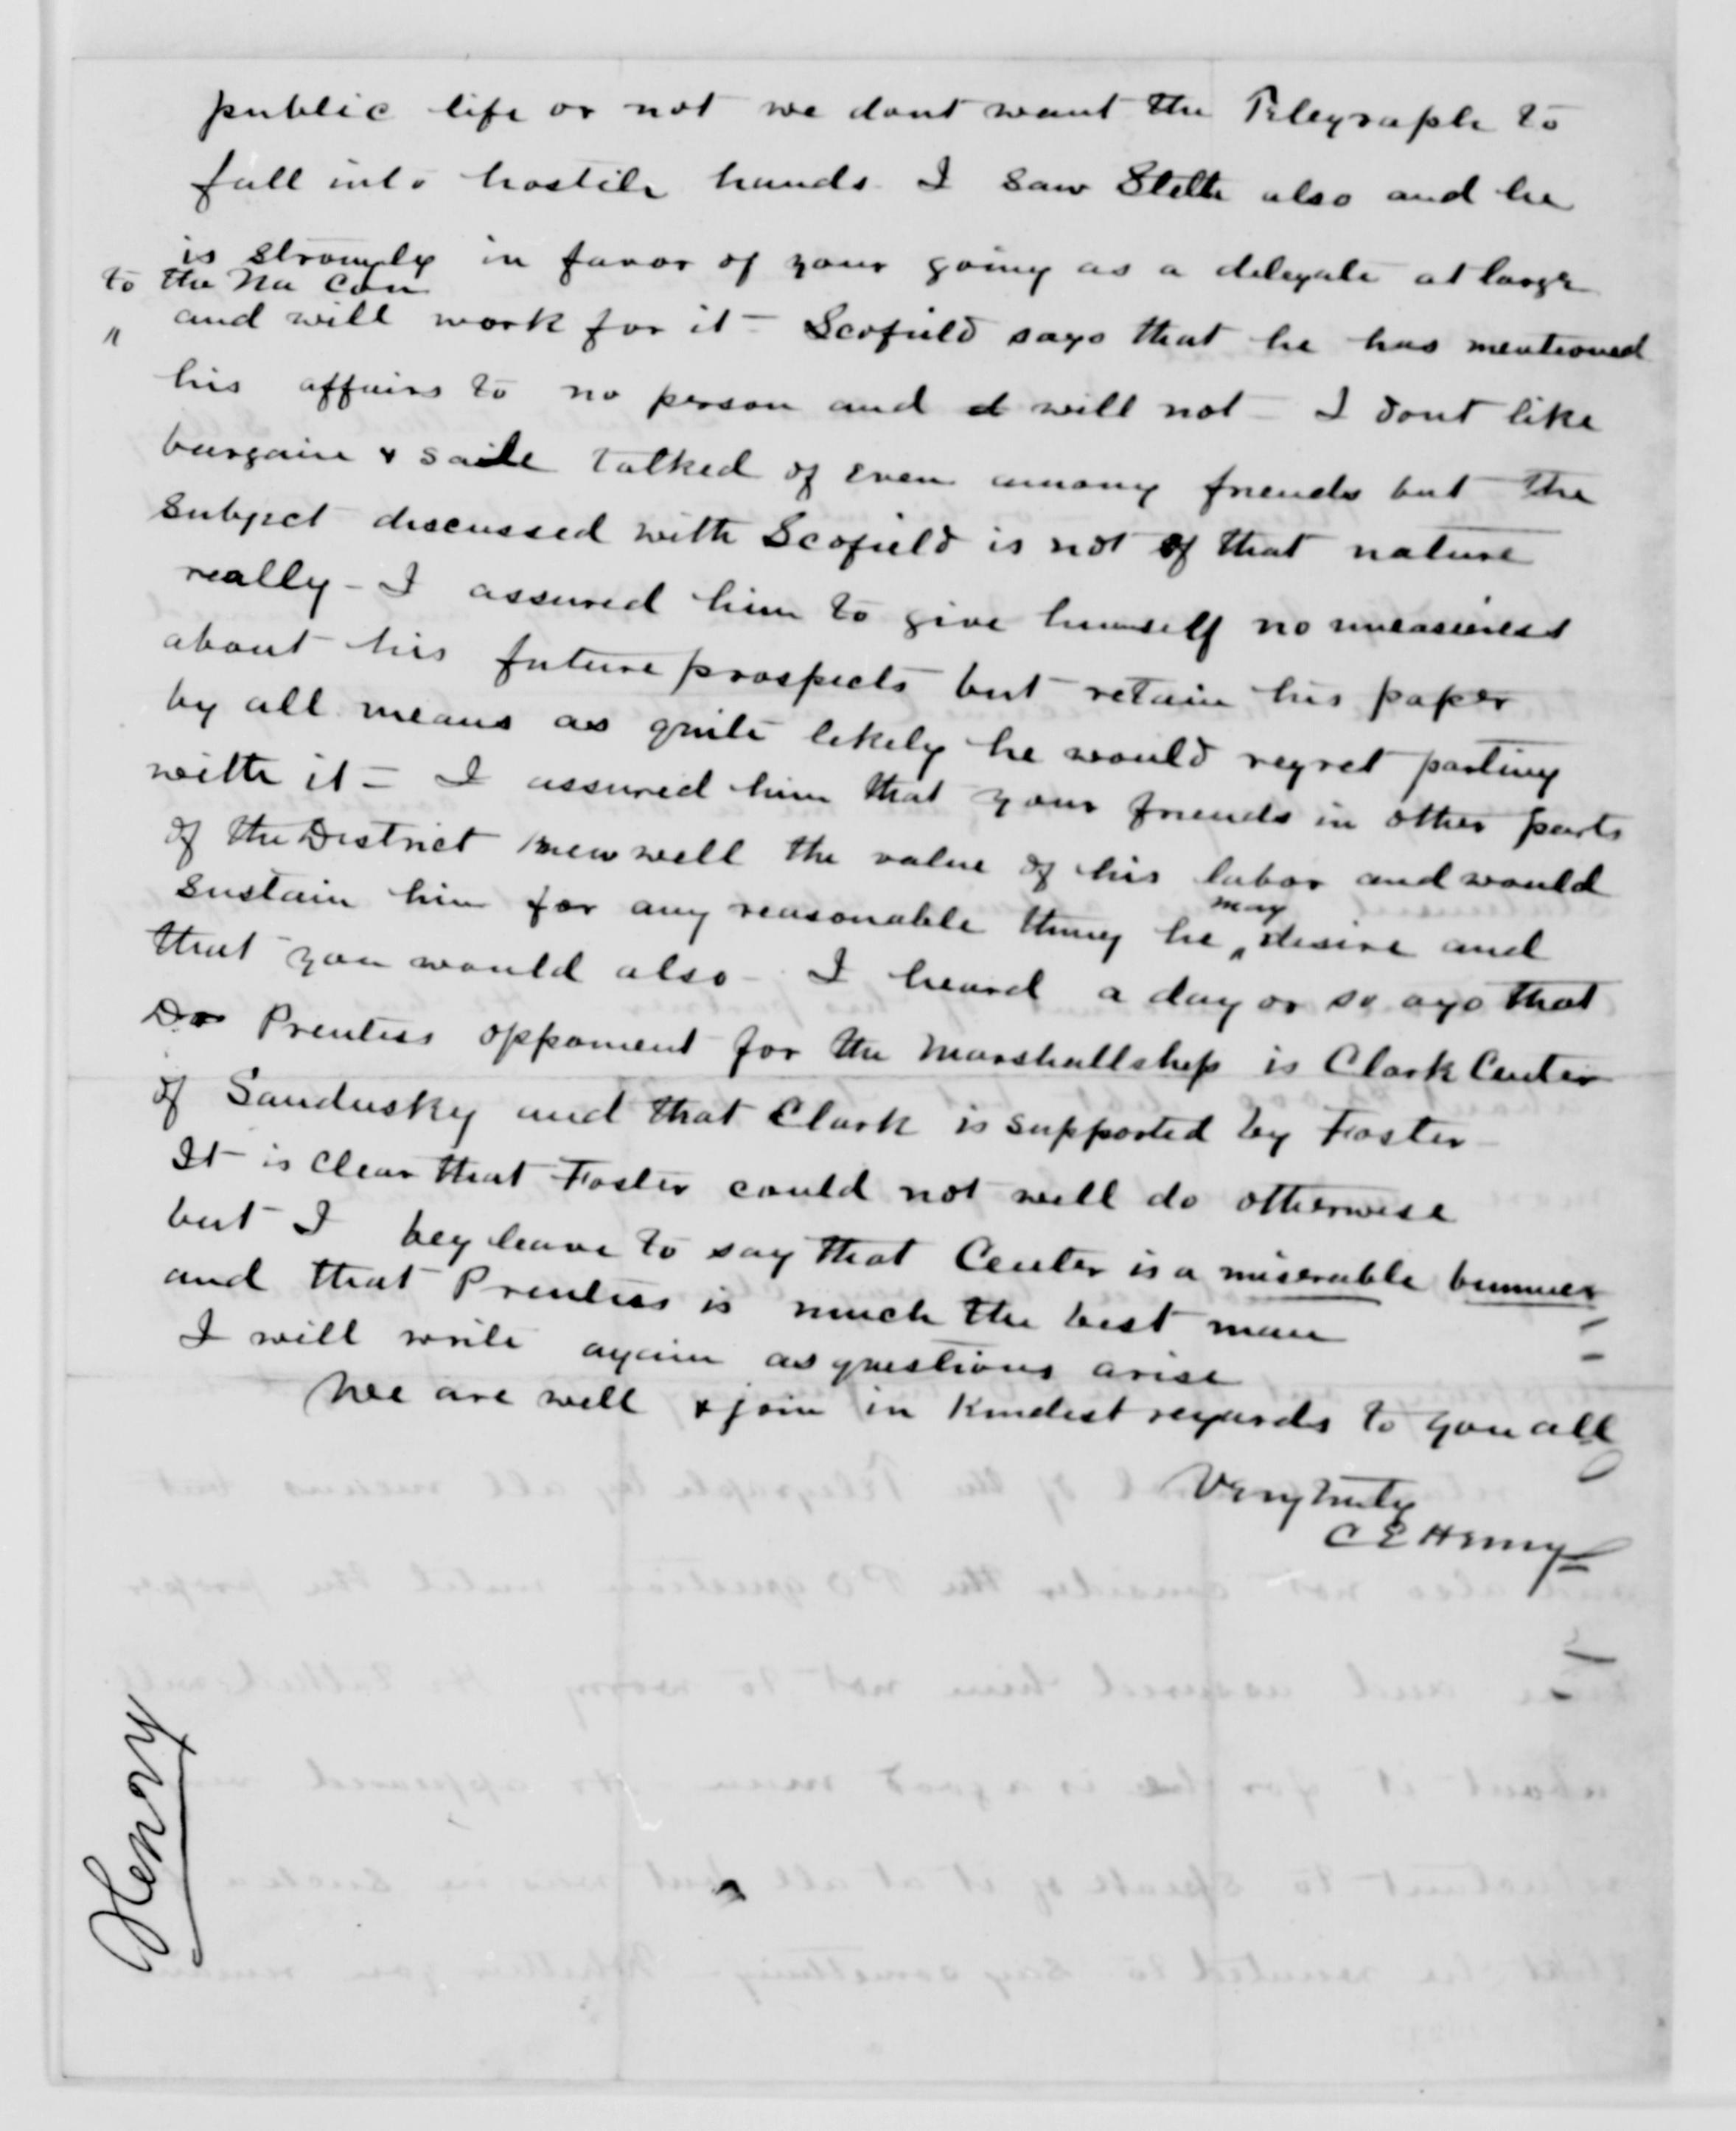 public life or not we dont want the Telegraph to
fall into hostile hands I saw Steele also and he
is strongly in favor of your going as a delegate at large
to the Na Con
and will work for it – Scofield says that he has mentioned
his affairs to no person and will not – I dont like
bargain & sale talked of even among friends but the
subject discussed with Scofield is not of that nature
really – I assured him to give himself no uneasiness
about his future prospects but retain his paper
by all means as quite likely he would regret parting
with it – I assured him that your friends in other parts
of the District knew well the value of his labor and would
sustain him for any reasonable thing he may desire and
that you would also – I heard a day or so ago that
Dr Prentiss opponent for the Marshallship is Clark Center
of Sandusky and that Clark is supported by Foster –
It is clear that Foster could not well do otherwise
but I beg leave to say that Center is a miserable bummer
and that Prentiss is much the best man
I will write again as questions arise
We are well & join in Kindest regards to you all
Very truly
C E Henry
Henry